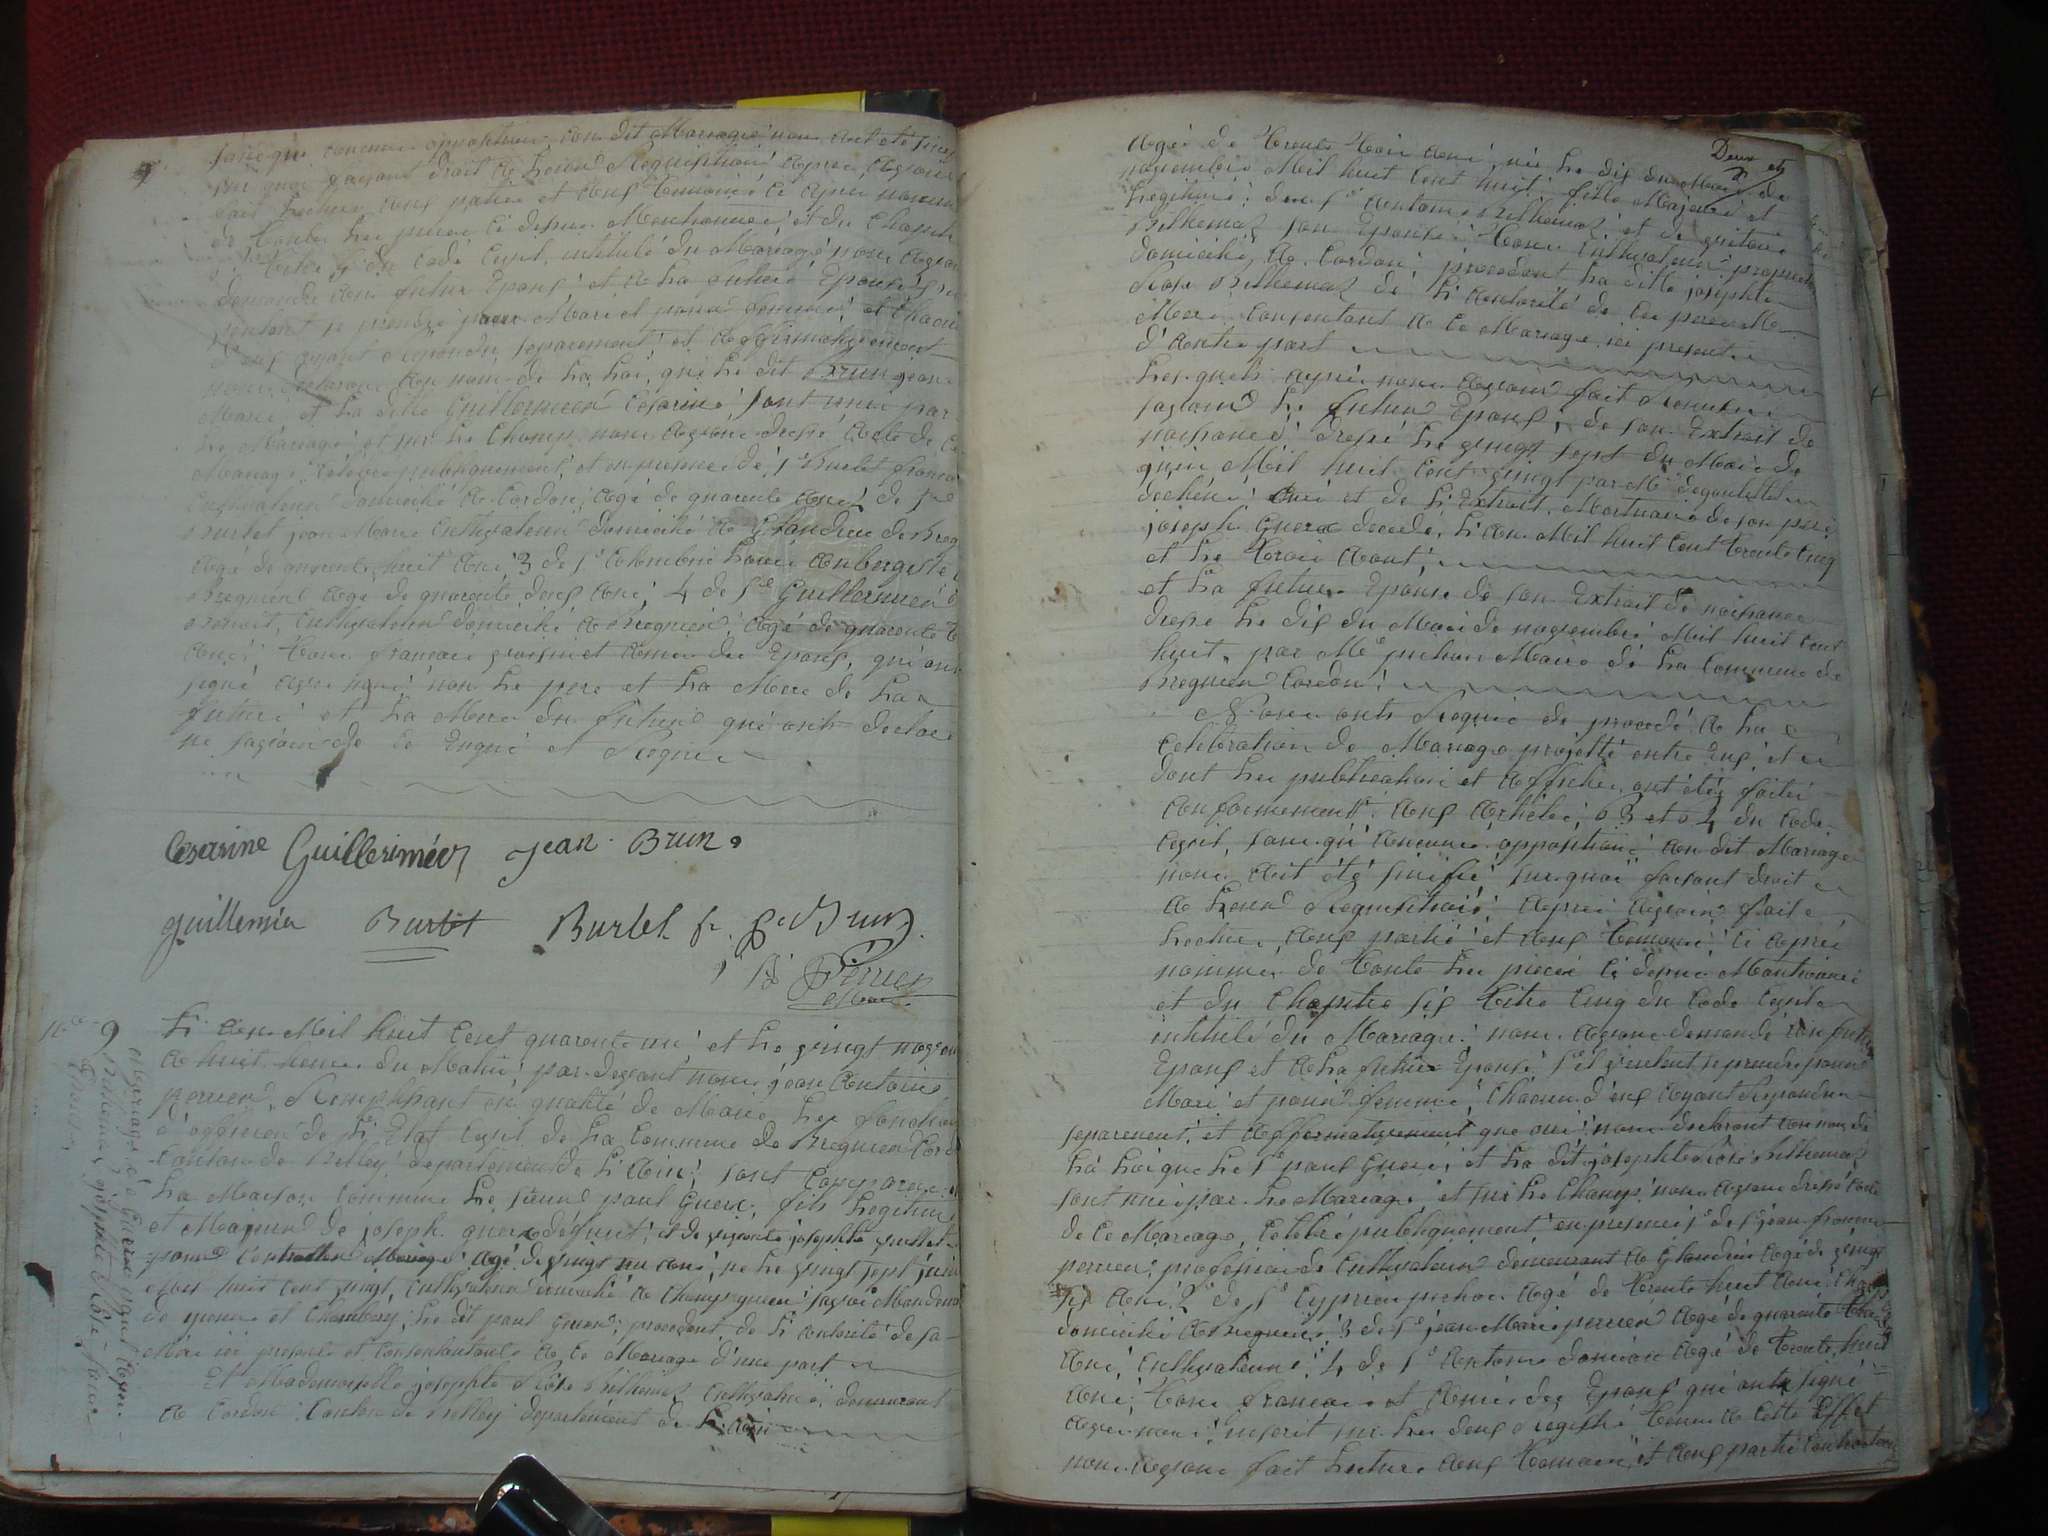 sans qu'aucune opposition au dit Mariage nous ait été
sur quoi faisant droit a Leurs Requisitions après avoir
fait Lecture aux parties et aux temoins ci après nommé
de toutes Les pièces ci dessus Mentionnées et du Chapitre
titre du code Civil intitulé du Mariage, nous avons
demandé au futur Epoux et a La future Epouse s'ils
veulent se prendre pour Mari et pour femme, et Chacun
d'eux ayant repondu separement et affirmativement
nous declarons au nom de La Loi, que Le dit Brun jean
Marie et La dite Guillermier Césarine, sont unis par
Le Mariage et sur Le Champ nous avons dressé acte de ce
Mariage, Célébré publiquement, et en presence de 1° Burlet
Cultivateur domicilié a Cordon, agé de quarante ans, 2 de Sr
Burlet jean Marie Cultivateur domicilié a Glandieu de Breg
agé de quarante huit ans, 3 de Sr Colombin Louis Aubergiste
Bregnier agé de quarante deux ans, 4 de Sr Guillermier
Benoit, Cultivateur domicilié a Bregnier, agé de quarante
ans, tous français et amis des Epoux, qui ont
signé avec nous, non Le pere et La Mere de La
future et La Mere du futur qui ont declaré
ne savoir de ce Enquis et Requis
Cesarine Guillerimier jean Brun
guillermier Burlet Burlet fr. Brun
Perrier
Maire
N° 9 L'an Mil huit Cent quarante un, et Le vingt
a huit heures du Matin, par devant nous jean Antoine
perrier, Remplissant en qualité de Maire, Les fonctions
d'officier de L'Etat Civil de La Commune de Bregnier Cord
Canton de Belley departement de L'Ain, sont Comparus
La Maison Commune Le Sieur paul Guerx, fils Legitime
et Majeur de joseph guerx defunt, et de josephte
pour Contracter Mariage agé de vingt un ans, né Le vingt sept juin
Mil huit cent vingt, Cultivateur domicilié a Champagneux Savoie Mandement
de yenne et Chambéry, Le dit paul Guerx, procedant de L'autorité de sa
Mère ici presente et Consentante a ce Mariage d'une part
Et Mademoiselle josephte Rose Bilhemaz Cultivatrice, demeurant
a Cordon, Canton de Belley departement de L'Ain
Mariage de Guerx paul avec
Bilhemaz josephte Rose
Deux et
agée de trente trois ans, née Le dix du Mois de
novembre Mil huit Cent huit, fille Majeure et
Legitime, de Sr antoine Bilhemaz, et de
Bilhemaz son Epouse, tous Cultivateurs propriétaires
domiciliés a Cordon, procedant La dite josephte
Rose Bilhemaz de L'autorité de ses pere et
Mere Consentant a ce Mariage, ici present
d'autre part
Lesquels après nous avoir fait Remettre
savoir Le futur Epoux, de son Extrait de
naissance, dressé Le vingt sept du Mois de
juin Mil huit Cent vingt par Mr
et de L'Extrait Mortuaire de son père
joseph Guerx decedé, L'an Mil huit Cent trente cinq
et Le trois Aout,
et La future Epouse de son Extrait de naissance
dressé Le dix du Mois de novembre Mil huit cent
huit, par Mr pichon Maire de La Commune de
Bregnier Cordon,
Nous ont Requis de procedé a La
Celebration de Mariage projetté entre Eux, et
dont Les publications et affiches ont étés faites
Conformement aux articles, 63 et 64 du Code
Civil, sans qu'aucune opposition au dit Mariage
nous ait été sinifié, sur quoi faisant droit
a Leurs Requisitions, après avoir fait
Lecture aux parties et aux temoins ci après
nommés de toute Les pieces ci dessus Mentionnés
et du Chapitre six titre Cinq du Code Civil
intitulé du Mariage, nous avons demandé au futur
Epoux et a La future Epouse, s'il veulent se prendre pour
Mari et pour femme, Chacun d'eux ayant Repondu
separement, et affermativement que oui, nous declarons au nom de
La Loi que Le Sr paul Guerx, et La dit josephte Rose Bilhemaz
sont unis par Le Mariage et sur Le Champ, nous avons dressé acte
de ce Mariage, Célébré publiquement, en presence 1° de Sr jean francois
perrier, profession de Cultivateur demeurant a Glandieu agé de vingt
six ans, 2° de Sr Cyprien pichon agé de trente huit ans,
domicilié a Bregnier, 3 de Sr jean Marie perrier agé de quarante
ans, Cultivateurs, 4 de Sr Antoine agé de trente huit
ans, tous francais et amis des Epoux qui ont signé
avec nous, inscrit sur Les deux registre tenus a cette Effet
nous avons fait Lecture aux temoins, et aux parties Contractantes